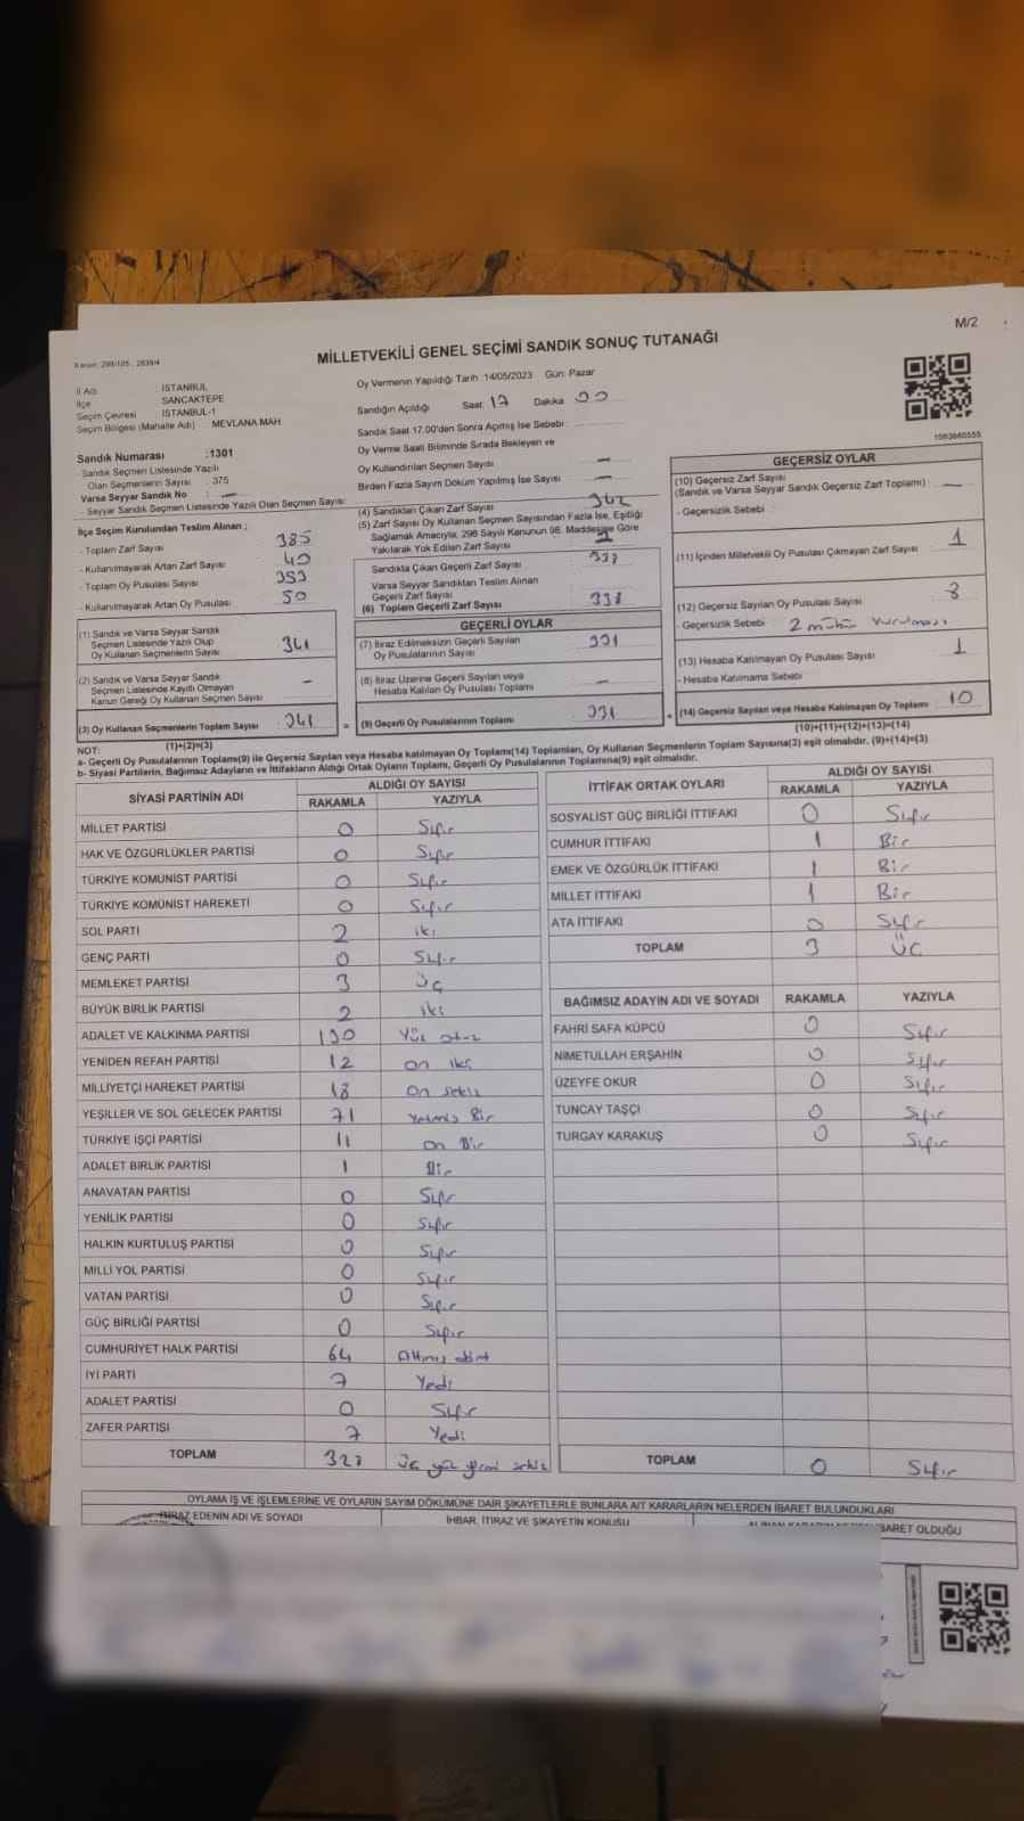 M/2
MİLLETVEKİLİ GENEL SEÇİMİ SANDIK SONUÇ TUTANAĞI
İl Adı : İSTANBUL
İlçe SANCAKTEPE
Seçim Çevresi : İSTANBUL-1
Seçim Bölgesi (Mahalle Adı) MEVLANA MAH
Sandık Numarası : 1301
Sandık Seçmen Listesinde Yazılı
Olan Seçmenlerin Sayısı : 375
Varsa Seyyar Sandık No : —
- Seyyar Sandık Seçmen Listesinde Yazılı Olan Seçmen Sayısı:
İlçe Seçim Kurulundan Teslim Alınan ;
- Toplam Zarf Sayısı 385
- Kullanılmayarak Artan Zarf Sayısı
- Toplam Oy Pusulası Sayısı
- Kullanılmayarak Artan Oy Pusulası 50
(1) Sandık ve Varsa Seyyar Sandık
Seçmen Listesinde Yazılı Olup
Oy Kullanan Seçmenlerin Sayısı 341
(2) Sandık ve Varsa Seyyar Sandık
Seçmen Listesinde Kayıtlı Olmayan
Kanun Gereği Oy Kullanan Seçmen Sayısı -
(3) Oy Kullanan Seçmenlerin Toplam Sayısı 341
(1)+(2)=(3)
Oy Vermenin Yapıldığı Tarih :14/05/2023 Gün: Pazar
Sandığın Açıldığı Saat: 17 Dakika
Sandık Saat 17.00'den Sonra Açılmış İse Sebebi :
Oy Verme Saati Bitiminde Sırada Bekleyen ve
Oy Kullandırılan Seçmen Sayısı —
Birden Fazla Sayım Döküm Yapılmış İse Sayısı —
(4) Sandıktan Çıkan Zarf Sayısı 342
(5) Zarf Sayısı Oy Kullanan Seçmen Sayısından Fazla İse, Eşitliği
Sağlamak Amacıyla, 298 Sayılı Kanunun 98. Maddesine Göre
Yakılarak Yok Edilen Zarf Sayısı
Sandıkta Çıkan Geçerli Zarf Sayısı
Varsa Seyyar Sandıktan Teslim Alınan
Geçerli Zarf Sayısı
(6) Toplam Geçerli Zarf Sayısı
GEÇERLİ OYLAR
(7) İtiraz Edilmeksizin Geçerli Sayılan
Oy Pusulalarının Sayısı 331
(8) İtiraz Üzerine Geçerli Sayılan veya
Hesaba Katılan Oy Pusulası Toplamı —
(9) Geçerli Oy Pusulalarının Toplamı 331
1083860555
GEÇERSİZ OYLAR
(10) Geçersiz Zarf Sayısı
(Sandık ve Varsa Seyyar Sandık Geçersiz Zarf Toplamı) : —
- Geçersizlik Sebebi :
(11) İçinden Milletvekili Oy Pusulası Çıkmayan Zarf Sayısı 1
(12) Geçersiz Sayılan Oy Pusulası Sayısı 8
- Geçersizlik Sebebi 2 mühür vurulması
(13) Hesaba Katılmayan Oy Pusulası Sayısı 1
- Hesaba Katılmama Sebebi
(14) Geçersiz Sayılan veya Hesaba Katılmayan Oy Toplamı 10
(10)+(11)+(12)+(13)=(14)
NOT:
a- Geçerli Oy Pusulalarının Toplamı(9) ile Geçersiz Sayılan veya Hesaba katılmayan Oy Toplamı(14) Toplamları, Oy Kullanan Seçmenlerin Toplam Sayısına(3) eşit olmalıdır. (9)+(14)=(3)
b- Siyasi Partilerin, Bağımsız Adayların ve İttifakların Aldığı Ortak Oyların Toplamı, Geçerli Oy Pusulalarının Toplamına(9) eşit olmalıdır.
SİYASİ PARTİNİN ADI ALDIĞI OY SAYISI
RAKAMLA YAZIYLA
MİLLET PARTİSİ 0 Sıfır
HAK VE ÖZGÜRLÜKLER PARTİSİ 0 Sıfır
TÜRKİYE KOMÜNİST PARTİSİ 0 Sıfır
TÜRKİYE KOMÜNİST HAREKETİ 0 Sıfır
SOL PARTİ 2 iki
GENÇ PARTİ 0 Sıfır
MEMLEKET PARTİSİ 3 Üç
BÜYÜK BİRLİK PARTİSİ 2 iki
ADALET VE KALKINMA PARTİSİ 130 Yüz otuz
YENİDEN REFAH PARTİSİ 12 on iki
MİLLİYETÇİ HAREKET PARTİSİ 18 On sekiz
YEŞİLLER VE SOL GELECEK PARTİSİ 71 Yetmiş Bir
TÜRKİYE İŞÇİ PARTİSİ 11 on Bir
ADALET BİRLİK PARTİSİ 1 Bir
ANAVATAN PARTİSİ 0 Sıfır
YENİLİK PARTİSİ 0 Sıfır
HALKIN KURTULUŞ PARTİSİ 0 Sıfır
MİLLİ YOL PARTİSİ 0 Sıfır
VATAN PARTİSİ 0 Sıfır
GÜÇ BİRLİĞİ PARTİSİ 0 Sıfır
CUMHURİYET HALK PARTİSİ 64 Altmış dört
İYİ PARTİ 7 Yedi
ADALET PARTİSİ 0 Sıfır
ZAFER PARTİSİ 7 Yedi
TOPLAM 328 üç yüz yirmi sekiz
İTTİFAK ORTAK OYLARI ALDIĞI OY SAYISI
RAKAMLA YAZIYLA
SOSYALİST GÜÇ BİRLİĞİ İTTİFAKI 0 Sıfır
CUMHUR İTTİFAKI 1 Bir
EMEK VE ÖZGÜRLÜK İTTİFAKI 1 Bir
MİLLET İTTİFAKI 1 Bir
ATA İTTİFAKI 0 Sıfır
TOPLAM 3 ÜÇ
BAĞIMSIZ ADAYIN ADI VE SOYADI RAKAMLA YAZIYLA
FAHRİ SAFA KÜPCÜ 0 Sıfır
NİMETULLAH ERŞAHİN 0 Sıfır
ÜZEYFE OKUR 0 Sıfır
TUNCAY TAŞÇI 0 Sıfır
TURGAY KARAKUŞ 0 Sıfır
TOPLAM 0 Sıfır
OYLAMA İŞ VE İŞLEMLERİNE VE OYLARIN SAYIM DÖKÜMÜNE DAİR ŞİKAYETLERLE BUNLARA AİT KARARLARIN NELERDEN İBARET BULUNDUKLARI
İTİRAZ EDENİN ADI VE SOYADI İHBAR, İTİRAZ VE ŞİKAYETİN KONUSU İBARET OLDUĞU